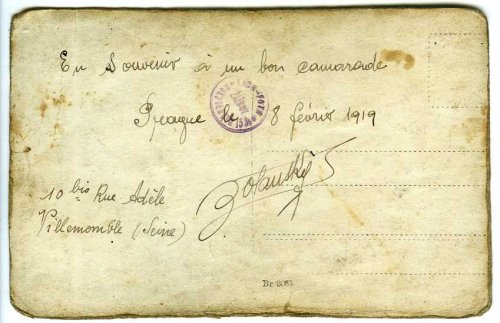 En Souvenir à un bon camarade
Prague le 8 février 1919
10 bis Rue Adèle
Villemomble (Seine)